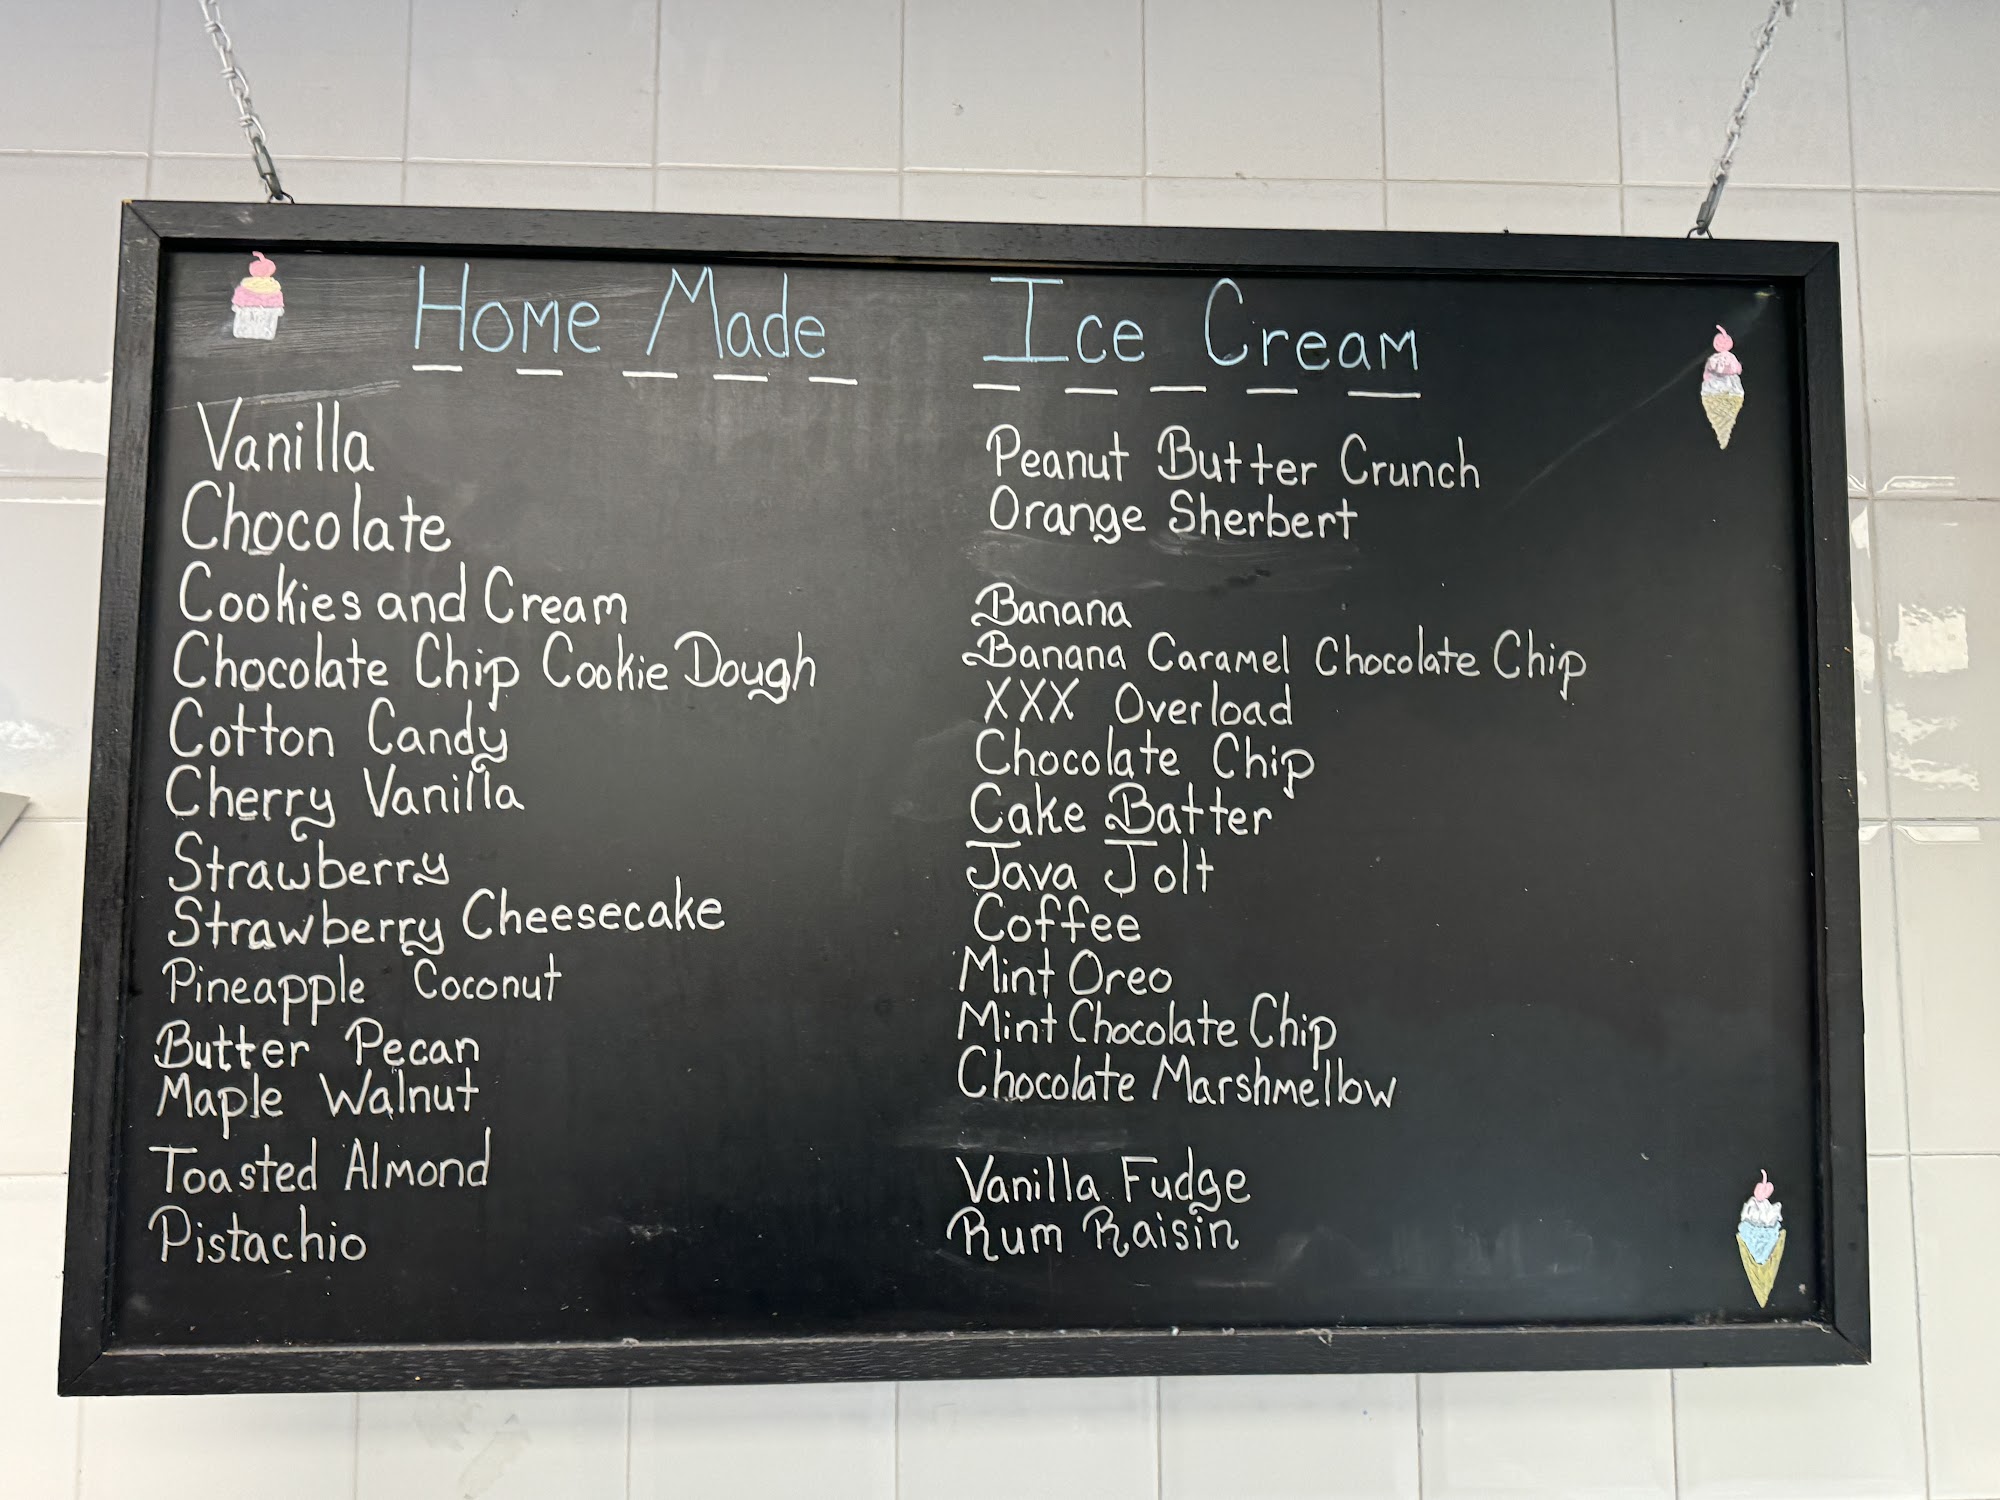 Home Made Ice Cream
Vanilla
Chocolate
Cookies and Cream
Chocolate Chip Cookie Dough
Cotton Candy
Cherry Vanilla
Strawberry
Strawberry Cheesecake
Pineapple Coconut
Butter Pecan
Maple Walnut
Toasted Almond
Pistachio
Peanut Butter Crunch
Orange Sherbert
Banana
Banana Caramel Chocolate Chip
XXX Overload
Chocolate Chip
Cake Batter
Java Jolt
Coffee
Mint Oreo
Mint Chocolate Chip
Chocolate Marshmellow
Vanilla Fudge
Rum Raisin